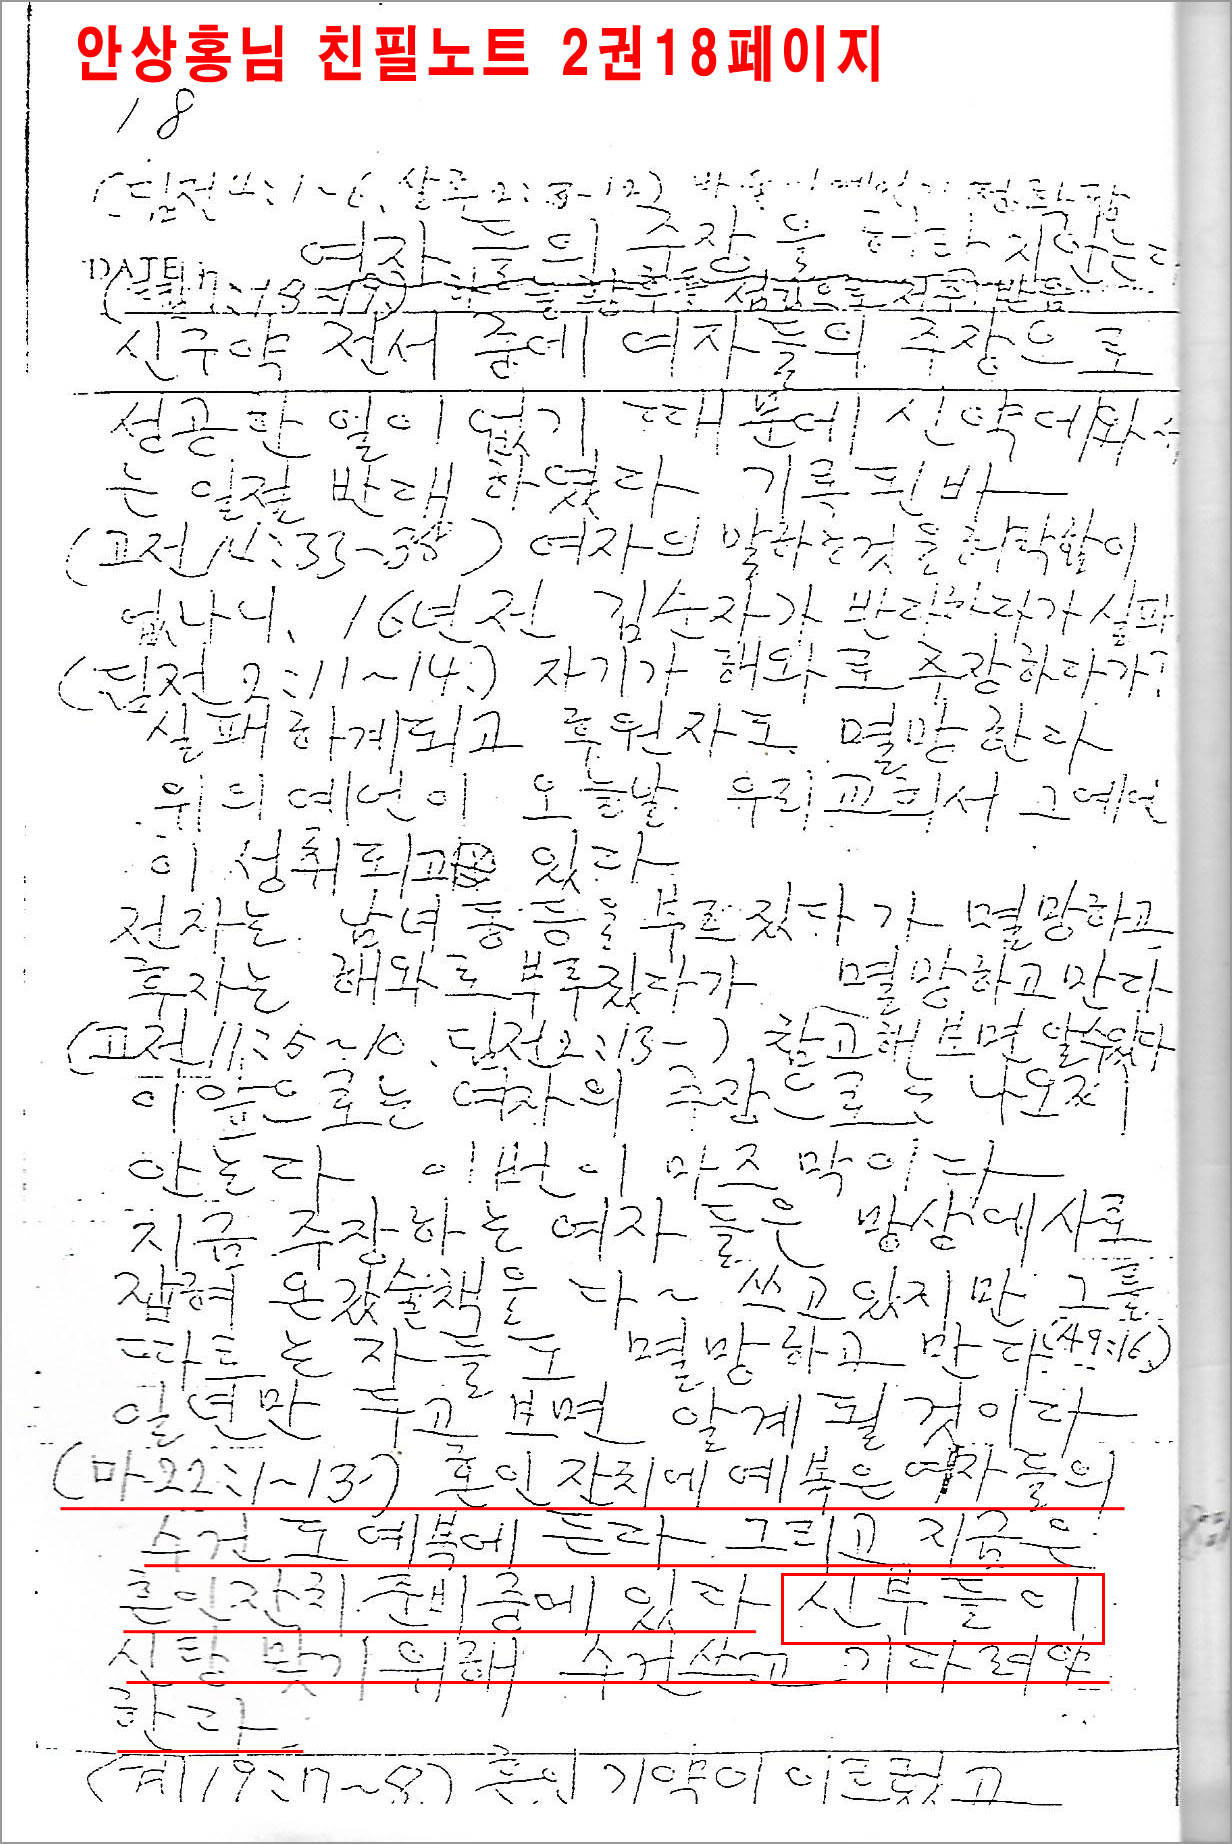 안상홍님 친필노트 2권18페이지
18
(딤전4:1~6, 살후2:3-12)
여자들의 주장을 허락지안는다
DATE
신구약 전서 중에 여자들의 주장으로
성공한 일이 없기 때문에 신약에와서
는 일절 반대 하였다 기록된바
(고전14:33-38) 여자의 말하는것을 허락함이
없나니, 16년전 김순자가 반대하다가 실파
(딤전 2:11~14) 자기가 해와로 주장하다가
실패하게되고 후원자도 멸망한다
위의 예언이 오늘날 우리교회서 그예언
이 성취되고 있다
전자는 남녀 동등을 부르짓다가 멸망하고
후자는 해와로부루짓다가 멸망하고만다
(고전11:5~10, 딤전2:13-) 참고해보면 알수있다
이앞으로는 여자의 주장으로는 나오지
안는다 이번이 마즈막이다
지금 주장하는 여자들은 망상에사로
잽혀 온갓술책을 다~ 쓰고있지만 그를
따르는 자들도 멸망하고 만다(사9:16)
일년만 두고보면 알게될 것이다
(마-22:1~13-) 혼인잔치에 예복은 여자들의
수건도 예복에 든다 그리고 지금은
혼인잔치 준비중에 있다 신부들이
신랑 맞기위해 수건쓰고 기다려야
한다
(계19:7~8) 혼인기약이 이르렀고